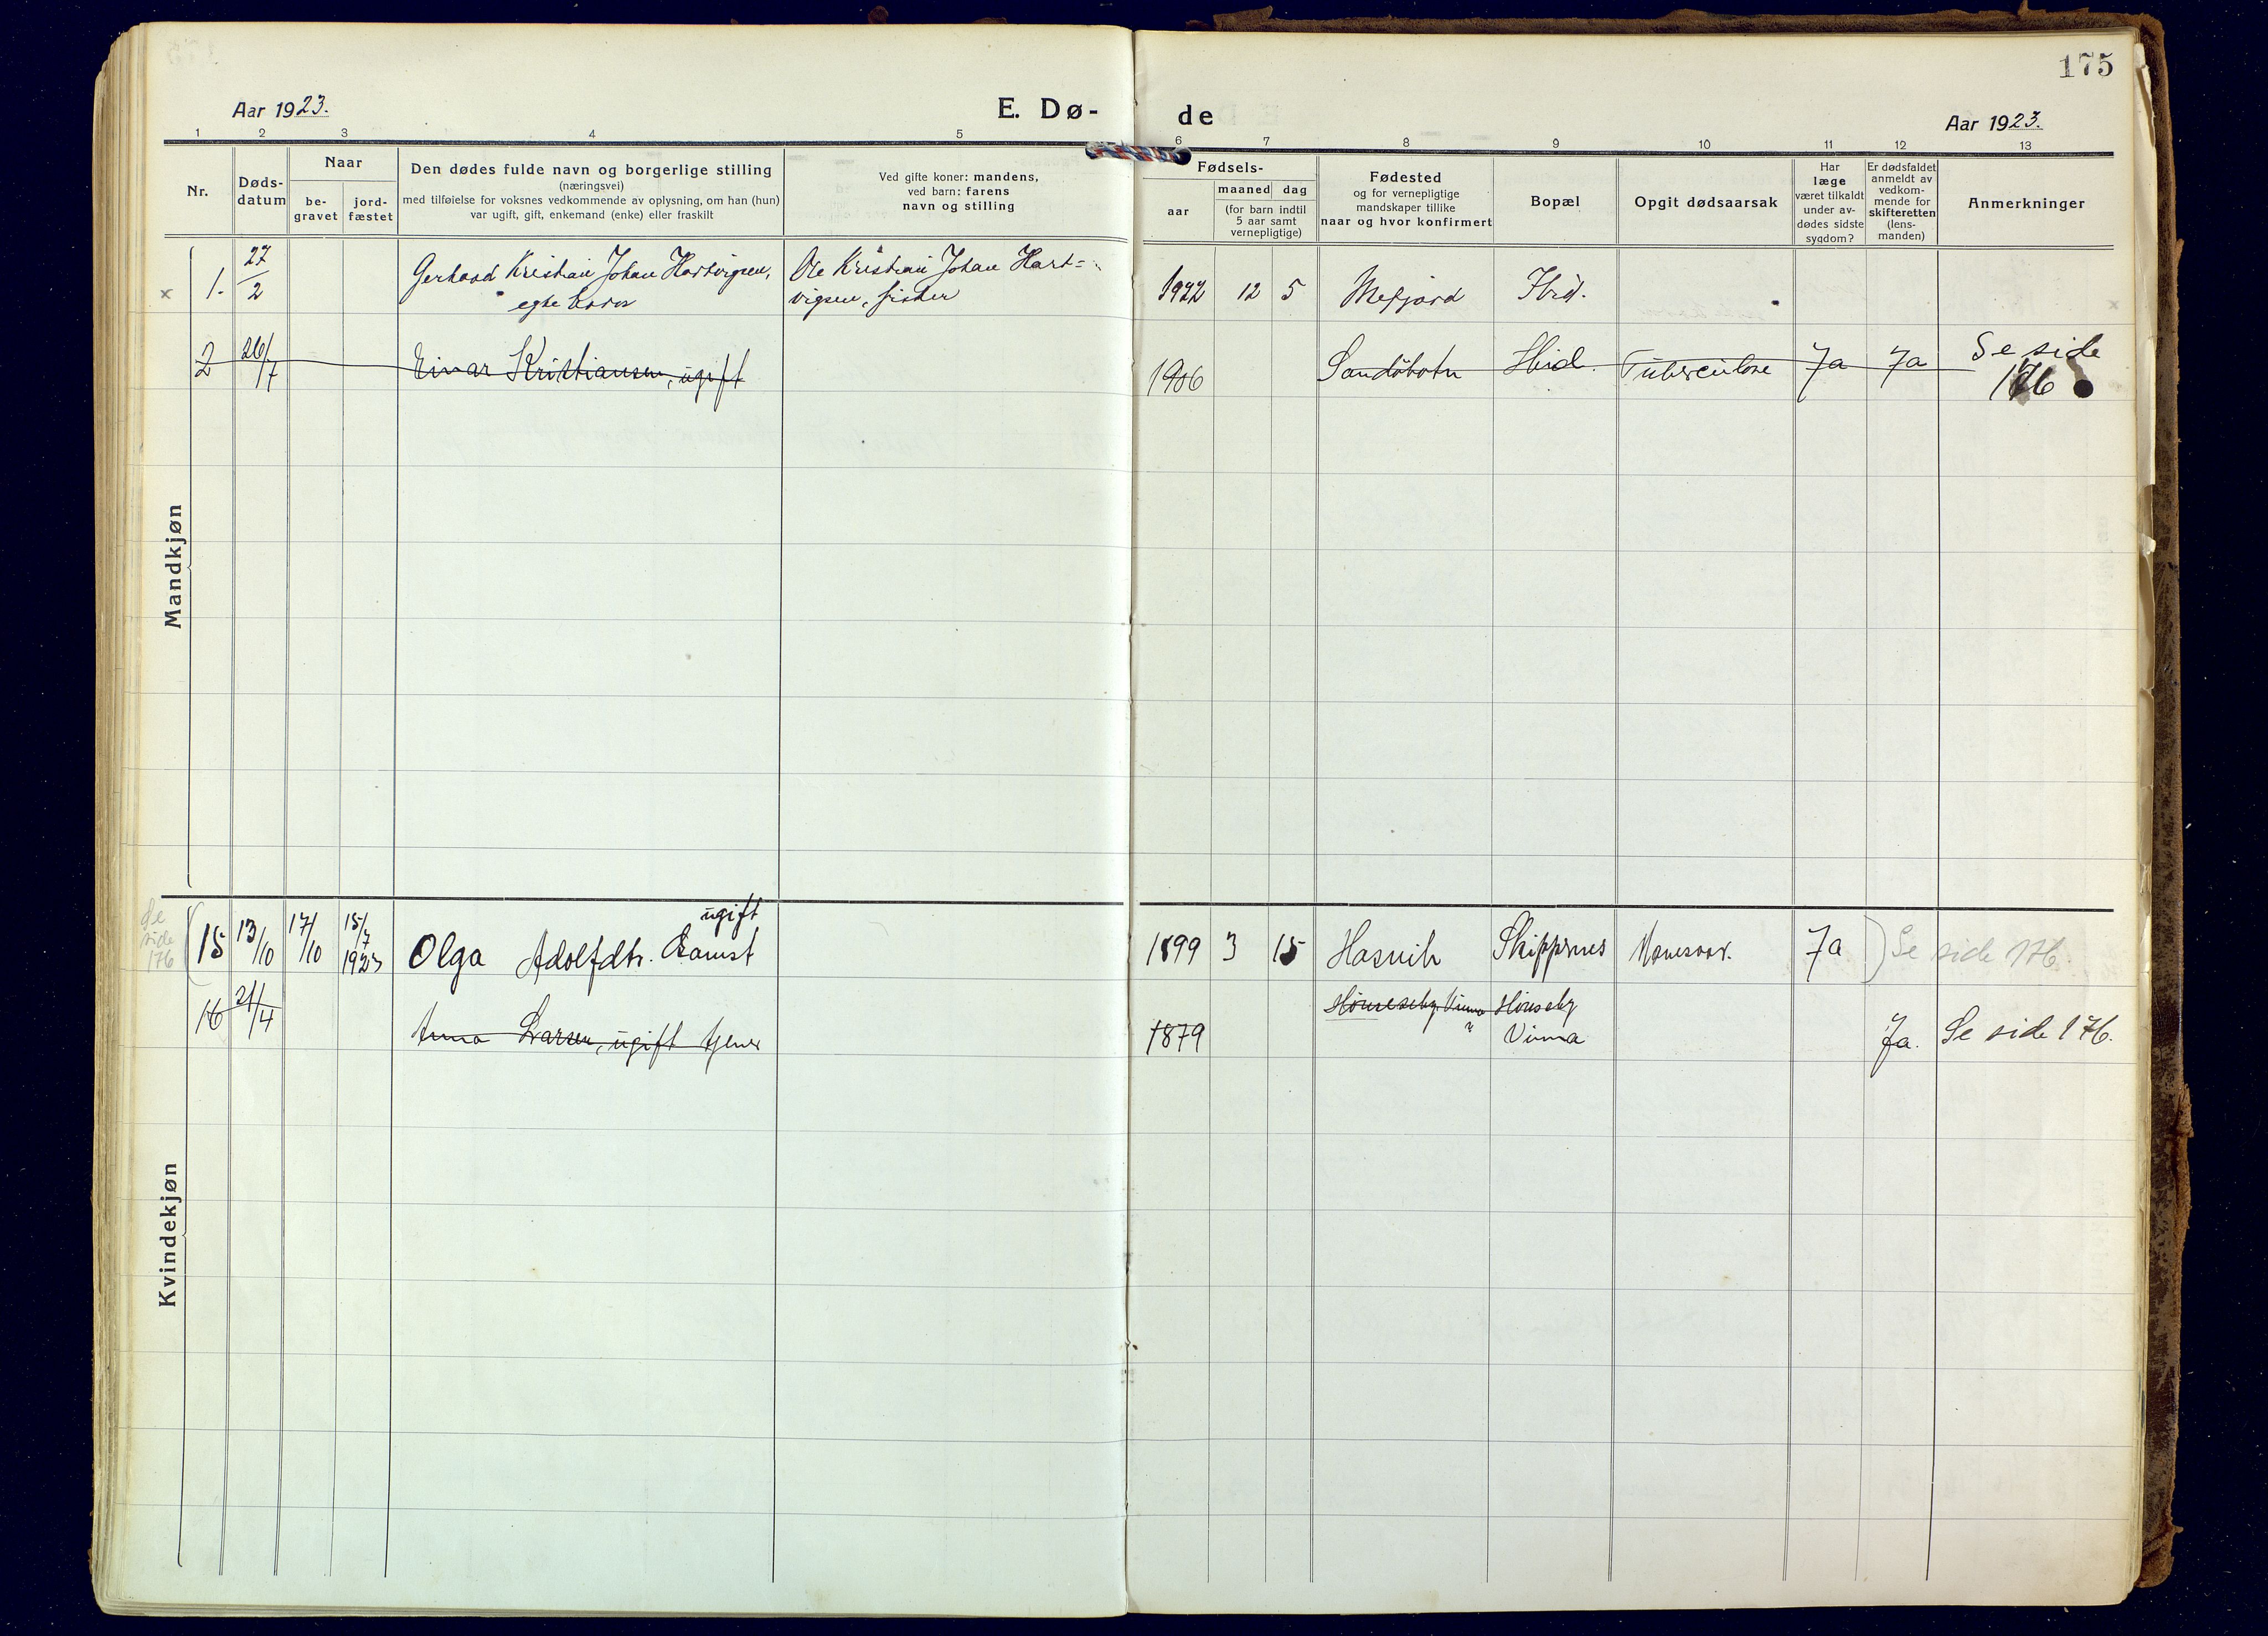 175
Aar 1923.
E. Dø-
de
Aar 1923.
1 2 3 4 5 6 7 8 9 10 11 12 13
Nr.
Døds-
datum
Naar
be-
gravet
jord-
fæstet
Den dødes fulde navn og borgerlige stilling
(næringsvei)
med tilføielse for voksnes vedkommende av oplysning, om han (hun)
var ugift, gift, enkemand (enke) eller fraskilt
Ved gifte koner: mandens,
ved barn: farens
navn og stilling
Fødsels-
aar
maaned dag
(for barn indtil
5 aar samt
vernepligtige)
Fødested
og for vernepligtige
mandskaper tillike
naar og hvor konfirmert
Bopæl
Opgit dødsaarsak
Har
læge
været tilkaldt
under av-
dødes sidste
sygdom?
Er dødsfaldet
anmeldt av
vedkom-
mende for
skifteretten
(lens-
manden)
Anmerkninger
Mandkjøn
x 1. 27/2 Gerhard Kristian Johan Hartvigsen, Ole Kristian Johan Hart=
egte barn vigsen, fisker
1922 12 5 Mefjord Ibid.
2 26/7 Einar Kristiansen, ugift 1906 Sandøbotn Ibid. Tuberculose Ja Ja Se side
176
Kvindekjøn
Se
side
176
15 13/10 17/10 15/7 1923 ugift
Olga Adolfdtr. 1899 3 15 Hasvik Skippernes Ja Se side 176.
16 21/4 Anna Larsen, ugift 1879 Hønseby Ja. Se side 176.
Vinna